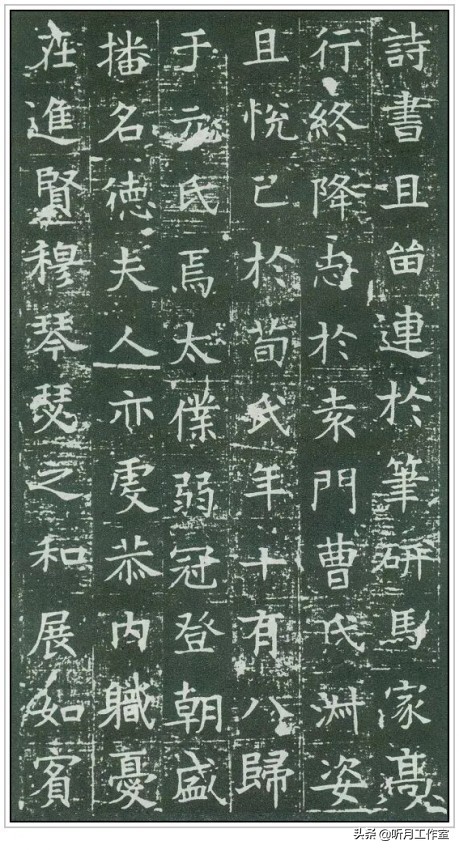 詩書且留連於筆研馬家髙
行終降志於袁門曹氏淑姿
且悅已於荀氏年十有八歸
于元氏焉太僕弱冠登朝盛
播名德夫人亦虔恭內職憂
在進賢穆琴瑟之和展如賓
头条 @听月工作室